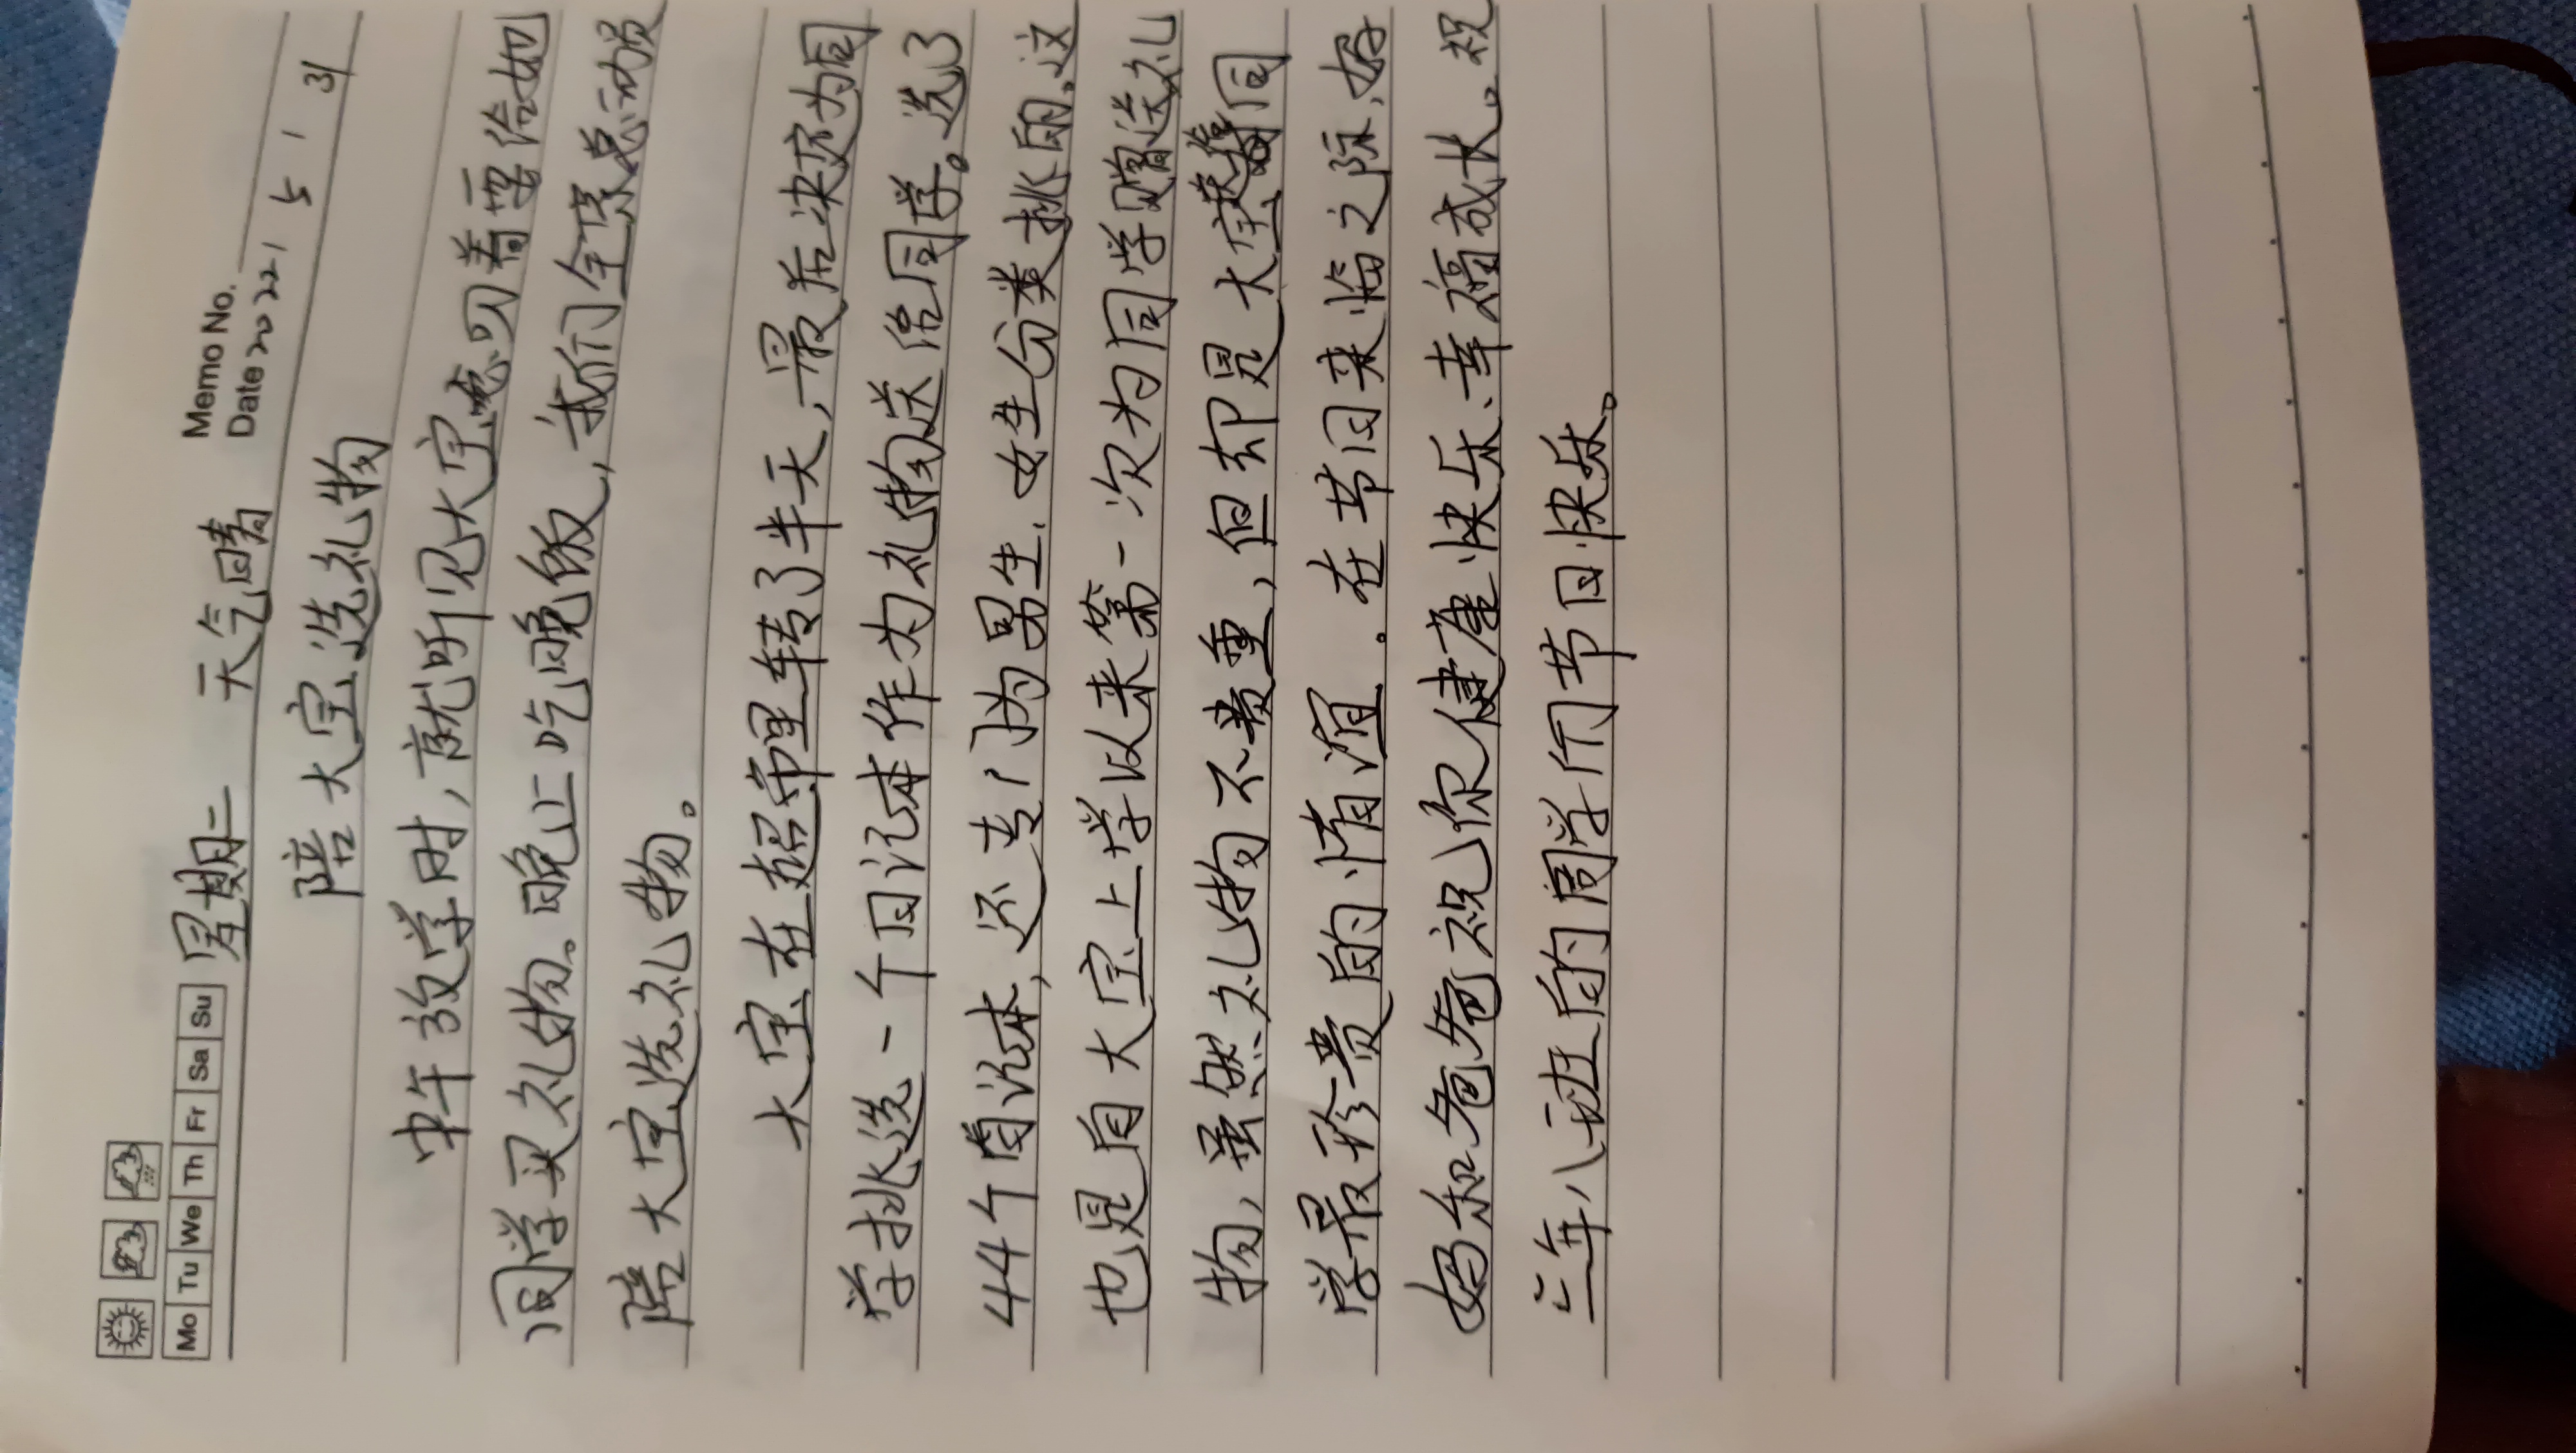 Memo No.
Mo Tu We Th Fr Sa Su 星期二 天气晴 Date 2022 / 5 / 31
陪大宝选礼物
中午放学时，就听见大宝急叨着要给她
同学买礼物。晚上吃晚饭，我们全家总动员
陪大宝选礼物。
大宝在超市里转了半天，最后决定为同
学挑选一个日记本作为礼物送给同学。选了
44个笔记本，还专门为男生、女生分类挑的，这
也是自大宝上学以来第一次为同学赠送礼
物，虽然礼物不贵重，但却是大宝同
学最珍贵的情谊。在节日来临之际，妈
妈和爸爸祝你健康快乐、幸福成长。祝
三年八班的同学们节日快乐。